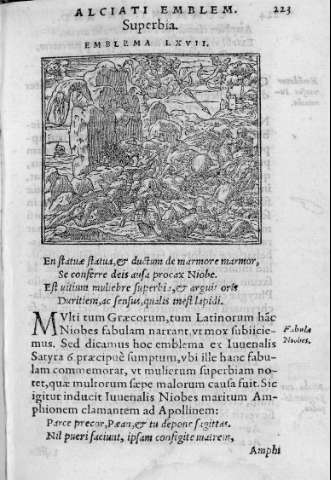 ALCIATI EMBLEM. 223
Superbia.
EMBLEMA LXVII.
En statuæ statua, & ductum de marmore marmor,
Se conferre deis ausa procax Niobe.
Est uitium muliebre superbia, & arguit oris
Duritiem, ac sensus, qualis inest lapidi.
MVlti tum Græcorum, tum Latinorum hāc
Niobes fabulam narrant, vt mox subiicie-
mus. Sed dicamus hoc emblema ex Iuuenalis
Satyra 6 præcipuè sumptum, vbi ille hanc fabu-
lam commemorat, vt mulierum superbiam no-
tet, quæ multorum sæpe malorum causa fuit. Sic
igitur inducit Iuuenalis Niobes maritum Am-
phionem clamantem ad Apollinem:
Parce precor, Pæan, & tu depone sagittas.
Nil pueri faciunt, ipsam configite matrem,
Amphi
Fabula
Niobes.